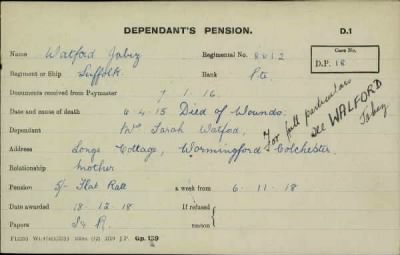 DEPENDANT'S PENSION. D.1
Name Watford Jabez Regimental No. 8012 Case No.
Regiment or Ship Suffolk Rank Pte D.P. 18
Documents received from Paymaster 7. 1. 16.
Date and cause of death 6-4-15 Died of Wounds
Dependant Mrs Sarah Watfod,
Address Longe Cottage, Wormingford Colchester.
Relationship Mother
Pension 5/- Flat Rate a week from 6-11-18
Date awarded 18-12-18 If refused
Papers reason
For full particulars
see WALFORD
Jabez
Gp. 139